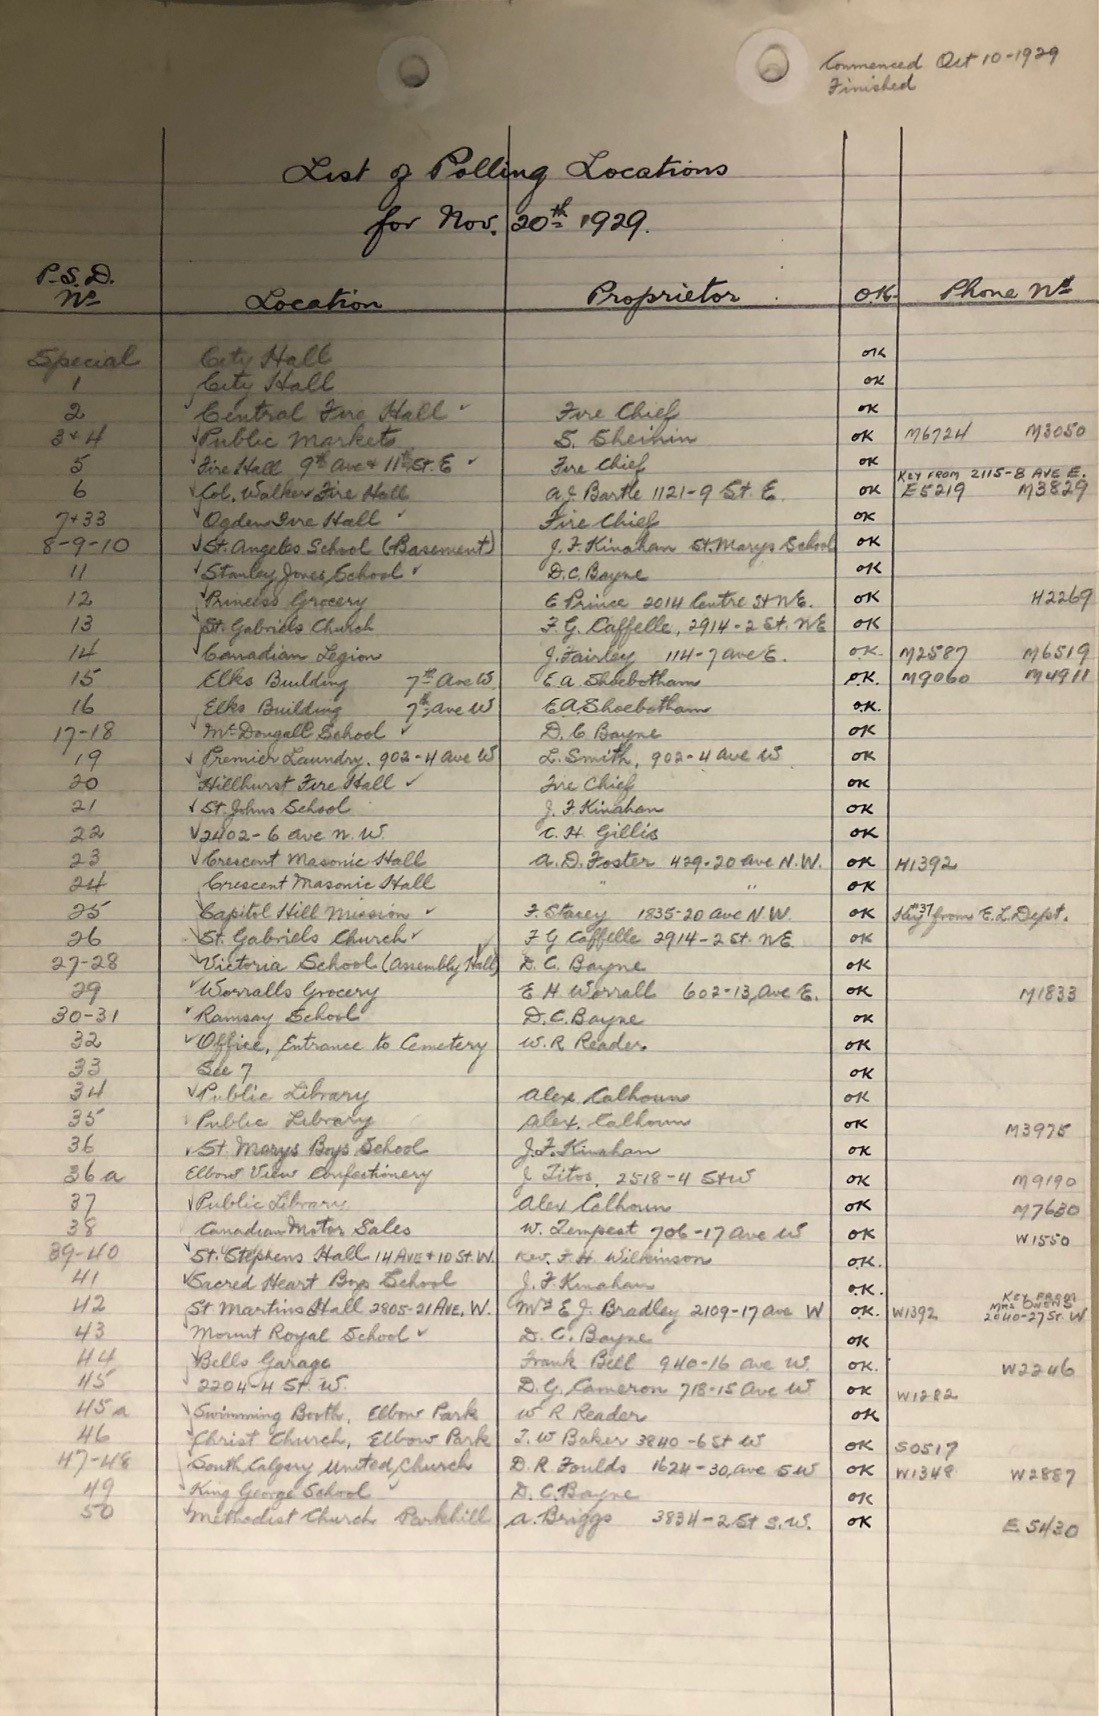 Commenced Oct 10-1929
Finished
List of Polling Locations
for Nov. 20th 1929.
P.S.D. No Location Proprietor O.K. Phone No
Special City Hall OK
1 City Hall OK
2 Central Fire Hall ✓ Fire Chief OK
3+4 ✓ Public Markets S. Sheinin OK M6724 M3050
5 ✓ Fire Hall 9th Ave + 11th St. E ✓ Fire Chief OK
KEY FROM 2115-8 AVE E.
6 ✓ Col. Walker Fire Hall A.J. Bartle 1121-9 St. E OK E5219 M3829
7+33 ✓ Ogden Fire Hall ✓ Fire Chief OK
8-9-10 ✓ St. Angelas School (Basement) J. F. Kinahan St. Marys School OK
11 ✓ Stanley Jones School ✓ D.C. Bayne OK
12 ✓ Princess Grocery E Prince 2014 Centre St N.E. OK H2269
13 ✓ St. Gabriels Church F. G. Caffelle, 2914-2 St. NE OK
14 ✓ Canadian Legion J. Fairley 114-7 ave E. OK. M2587 M6519
15 Elks Building 7th Ave W. E.A. Shoebotham OK. M9060 M4911
16 Elks Building 7th ave W E.A. Shoebotham OK.
17-18 ✓ McDougall School ✓ D. C. Bayne OK
19 ✓ Premier Laundry. 902-4 ave W L. Smith, 902-4 Ave W OK
20 Hillhurst Fire Hall ✓ Fire Chief OK
21 ✓ St. Johns School J. F. Kinahan OK
22 ✓ 2402-6 ave N.W. C. H. Gillis OK
23 ✓ Crescent Masonic Hall A. D. Foster 429-20 ave N.W. OK H1392
24 Crescent Masonic Hall " " OK
25 ✓ Capitol Hill Mission ✓ F. Stacey 1835-20 ave N.W. OK Key #37 from E.L. Dept.
26 ✓ St. Gabriels Church ✓ F G Caffelle 2914-2 St. NE OK
27-28 ✓ Victoria School (Assembly Hall) ✓ D. C. Bayne OK
29 ✓ Worralls Grocery E H Worrall 602-13 Ave E. OK M1833
30-31 ✓ Ramsay School D.C. Bayne OK
32 ✓ Office, Entrance to Cemetery W. R Reader OK
33 See 7 OK
34 ✓ Public Library Alex Calhoun OK
35 Public Library Alex. Calhoun OK M3975
36 ✓ St. Marys Boys School J. F. Kinahan OK
36a Elbow View Confectionery J Titos, 2518-4 St W OK M9190
37 ✓ Public Library Alex Calhoun OK M7630
38 Canadian Motor Sales W. Tempest 706-17 Ave W OK W1550
39-40 ✓ St. Stephens Hall 14 AVE + 10 ST. W. Rev. F. H. Wilkinson OK.
41 ✓ Sacred Heart Boys School J. F Kinahan OK.
KEY FROM MRS OWENS 2040-27 St. W
42 St Martins Hall 2805-21 AVE. W. Mrs E J. Bradley 2109-17 ave W OK. W1392
43 Mount Royal School ✓ D. C. Bayne OK
44 ✓ Bells Garage Frank Bell 940-16 ave W. OK. W2246
45 ✓ 2204-4 St. W. D. G. Cameron 718-15 Ave W OK W1282
45a ✓ Swimming Booth, Elbow Park W R Reader OK
46 ✓ Christ Church, Elbow Park T. W Baker 3840-6 St W OK S0517
47-48 ✓ South Calgary United Church D. R Foulds 1624-30 ave SW OK W1348 W2887
49 ✓ King George School ✓ D. C. Bayne OK
50 ✓ Methodist Church Parkhill A. Briggs 3834-2 St S.W. OK E5430